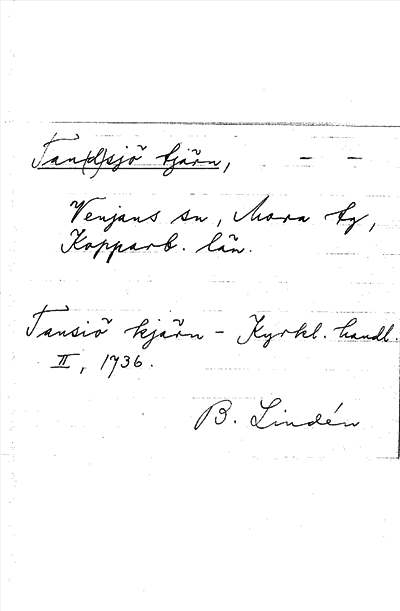 Tan(d)sjö tjärn, – –
Venjans sn, Mora ty,
Kopparb. län.
Tansiö kjärn – Kyrkl. handl.
II, 1736.
B. Lindén